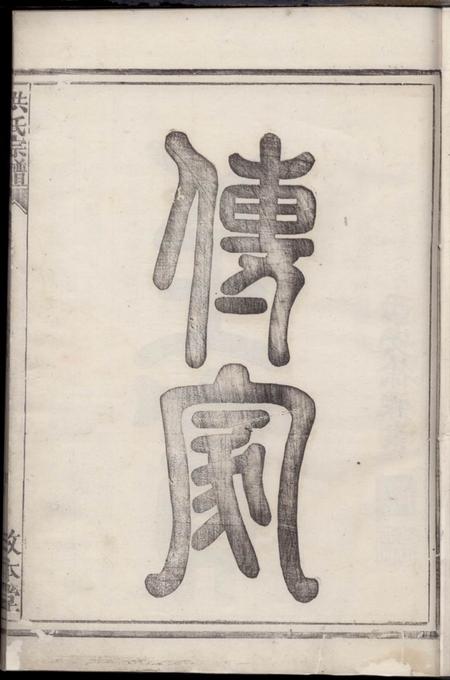 傳家
洪氏宗譜
敦本堂